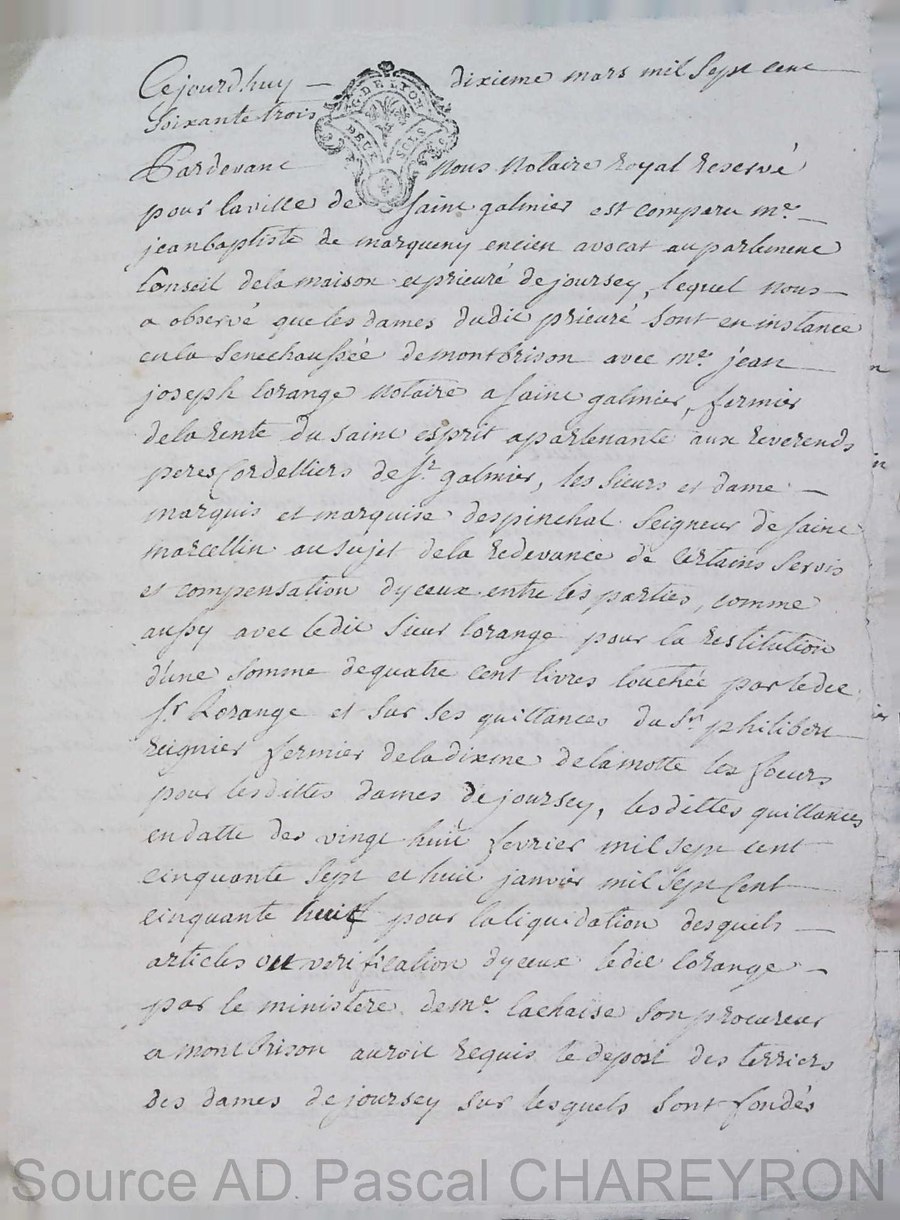 Cejourdhuy dixieme mars mil sept cent
soixante trois
G. DE LYON
DEUX SOLS
Pardevant nous notaire royal reservé
pour la ville de saint galmier est comparu me.
jean baptiste de marqueny encien avocat au parlement
Conseil de la maison et prieuré de joursey, lequel nous
a observé que les dames dudit prieuré sont en instance
en la senechaussée de montbrison avec me. jean
joseph lorange notaire a saint galmier, fermier
de la rente du saint esprit apartenante aux reverends
peres Cordelliers de st. galmier, les sieurs et dame
marquis et marquise despinchal seigneur de saint
marcellin au sujet de la redevance de certains servis
et compensation dyceux entre les parties, comme
aussy avec ledit sieur lorange pour la restitution
d'une somme de quatre cent livres touchée par ledit
sr. Lorange et sur ses quittances du sr. philibert
reignier fermier de la dixme de lamotte les soeurs
pour lesdittes dames de joursey, lesdittes quittances
en datte des vingt huit fevrier mil sept cent
cinquante sept et huit janvier mil sept Cent
cinquante huit pour la liquidation desquels
articles ou verification dyceux ledit lorange
par le ministere de me. lachaise son procureur
a montbrison auroit requis le depost des terriers
des dames de joursey sur lesquels sont fondés
Source AD Pascal CHAREYRON